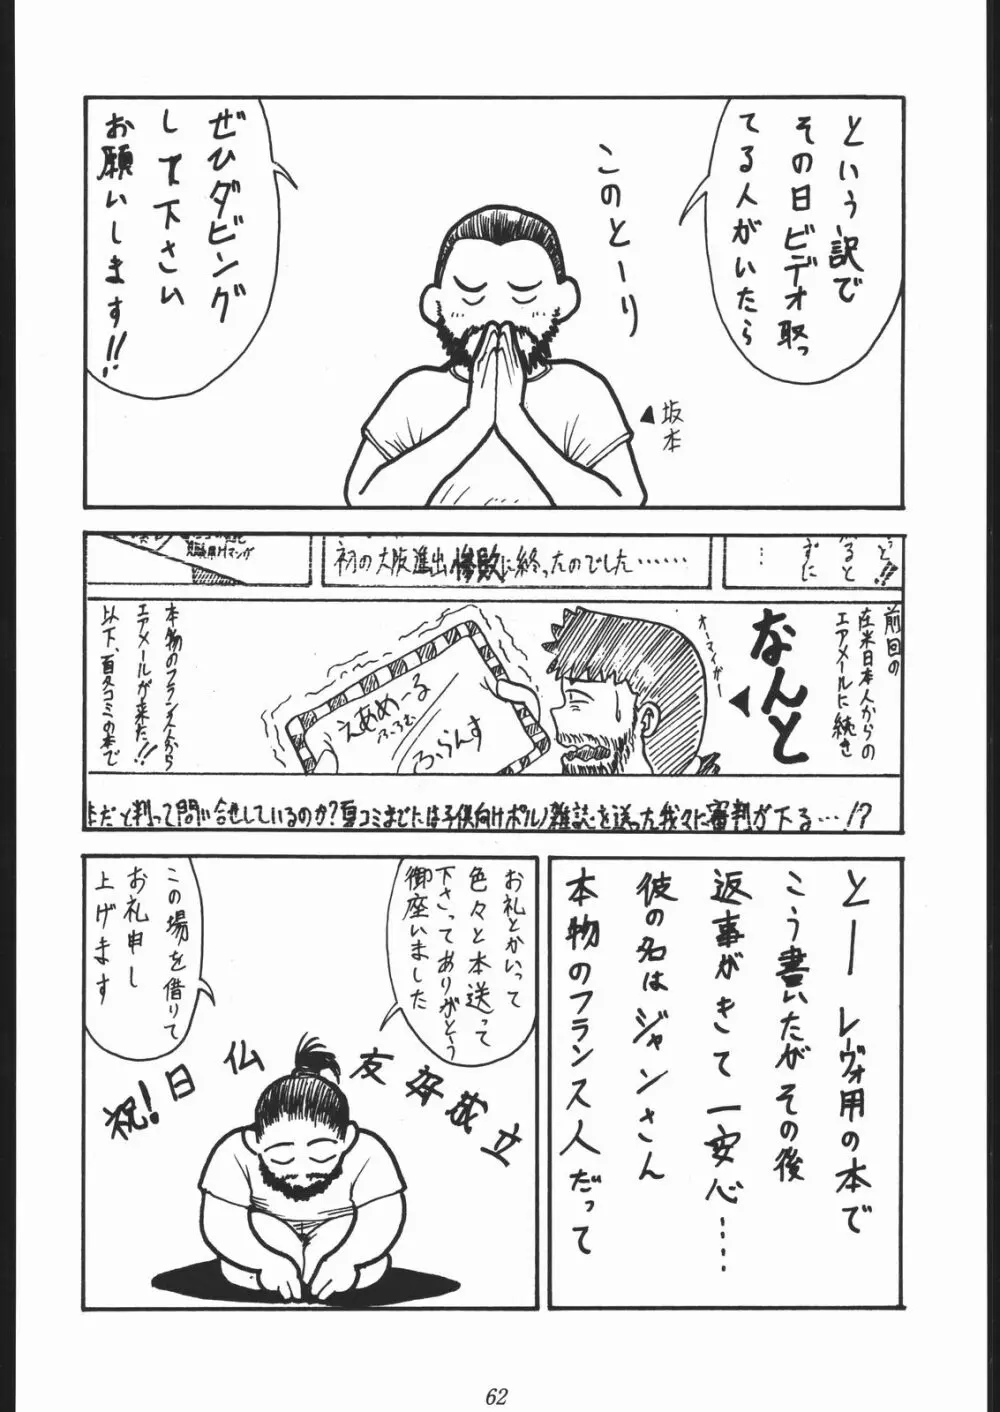 という訳で
その日ビデオ取っ
てる人がいたら
このとーり
坂本
ぜひダビング
して下さい
お願いします!!
初の大阪進出惨敗に終ったのでした……
前回の
在米日本人からの
エアメールに続き
なんと
オーマンガー
えあめーる
ふろむ
ふらんす
本物のフランス人から
エアメールが来た!!
以下、夏コミの本で
だと判って問い合せしているのか?夏コミまでには子供向けポルノ雑誌を送った我々に審判が下る…!?
とー レーヴォ用の本で
こう書いたがその後
返事がきて一安心……
彼の名はジャンさん
本物のフランス人だって
お礼とかいって
色々と本送って
下さってありがとう
御座いました
この場を借りて
お礼申し
上げます
祝!日仏友好成立
62